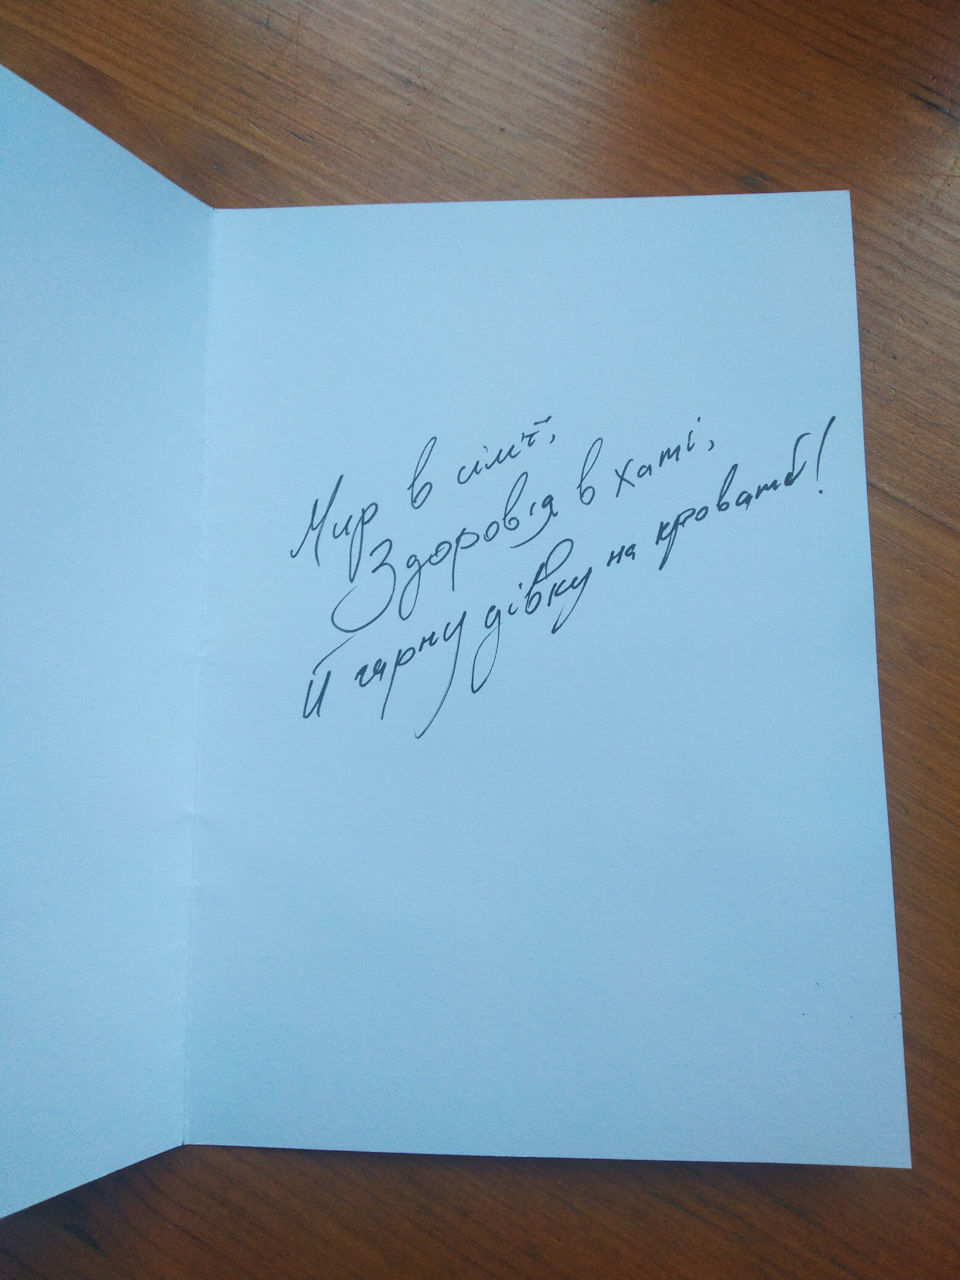 Мир в сім'ї,
Здоров'я в хаті,
Й гарну дівку на кроваті!